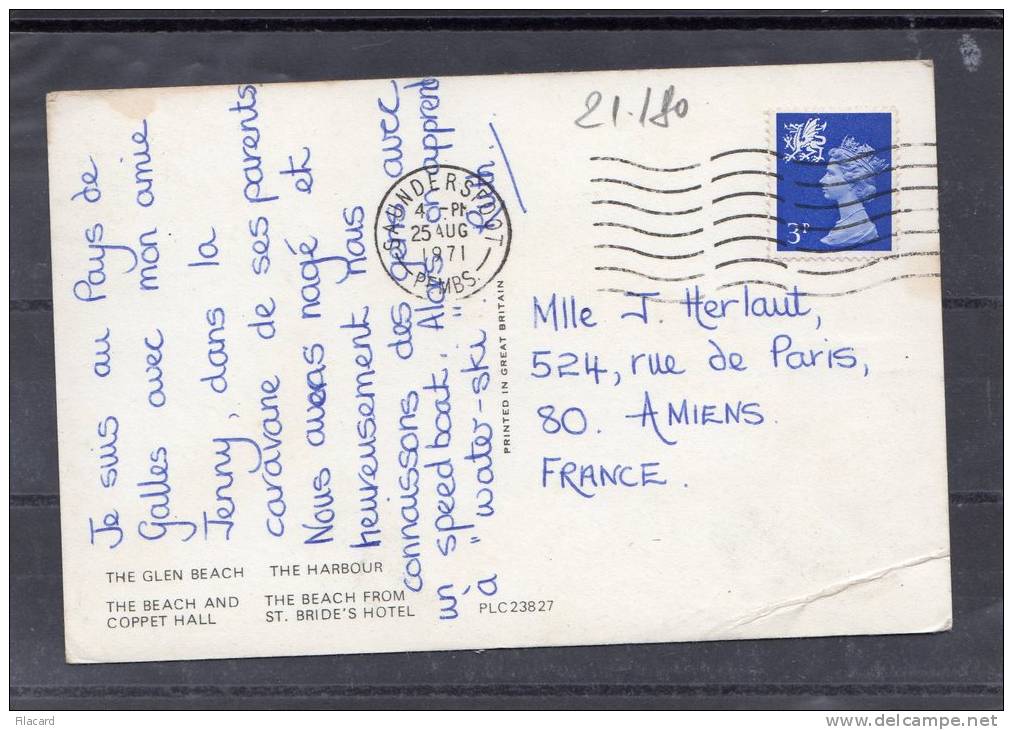 Je suis au Pays de
Galles avec mon amie
Jenny, dans la
caravane de ses parents
Nous avons nagé et
heureusement nous
connaissons des gens avec
un speed boat. Alors on apprend
à "water-ski"
21./80
SAUNDERSFOOT
4 - PM
25 AUG
1971
PEMBS.
3P
PRINTED IN GREAT BRITAIN
Mlle J. Herlaut,
524, rue de Paris,
80. AMIENS.
FRANCE.
THE GLEN BEACH THE HARBOUR
THE BEACH AND COPPET HALL
THE BEACH FROM ST. BRIDE'S HOTEL
PLC23827
Filacard
www.delcampe.net